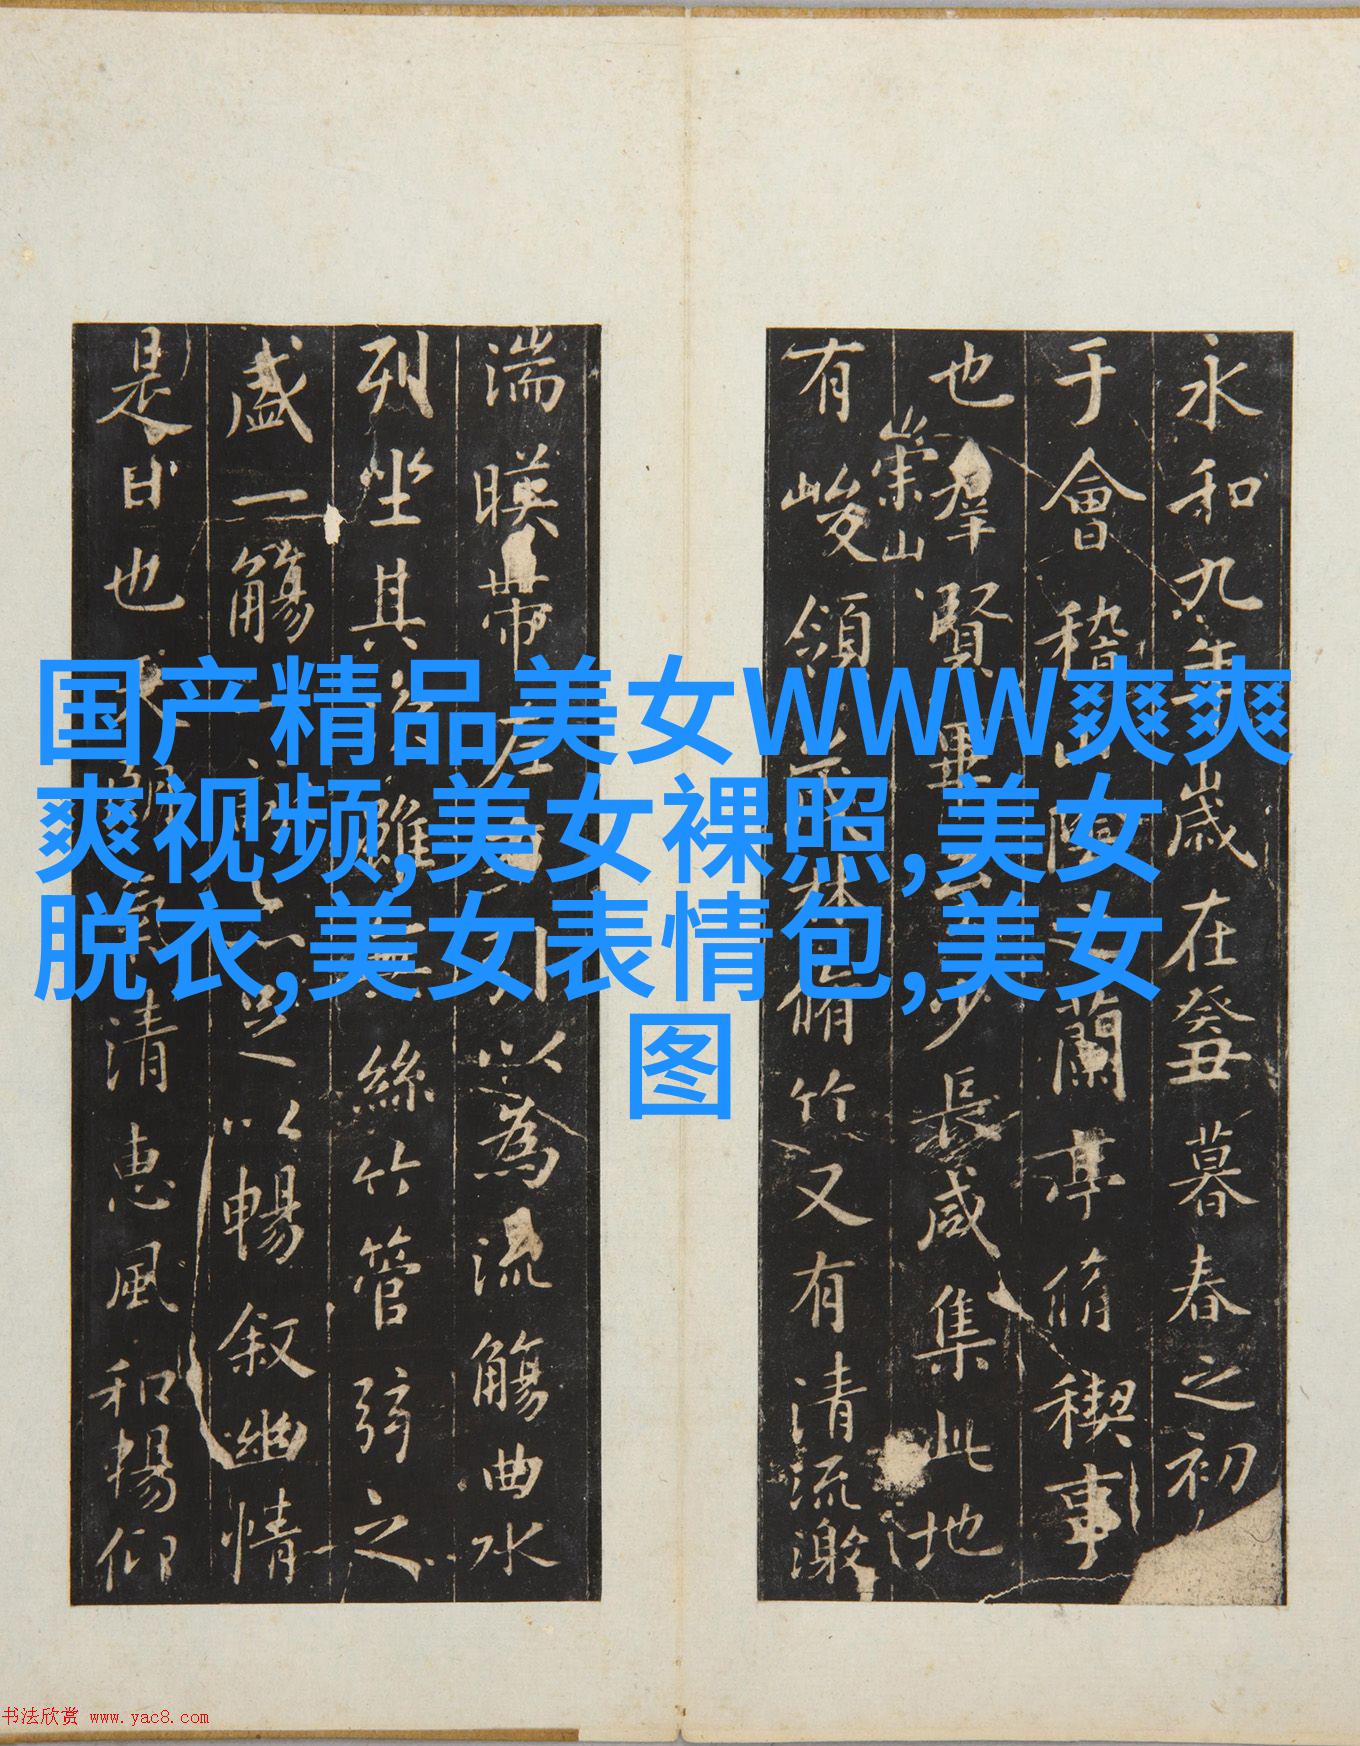 永和九年歲在癸丑暮春之初
于會稽山陰之蘭亭脩禊事
也羣賢畢至少長咸集此地
崇山
有峻領茂林脩竹又有清流激
湍暎帶左右引以為流觴曲水
列坐其次雖無絲竹管弦之
盛一觴一詠亦足以暢叙幽情
是日也天朗氣清惠風和暢仰
国产精品美女WWW爽爽
爽视频,美女裸照,美女
脱衣,美女表情包,美女
图
书法欣赏 www.yac8.com